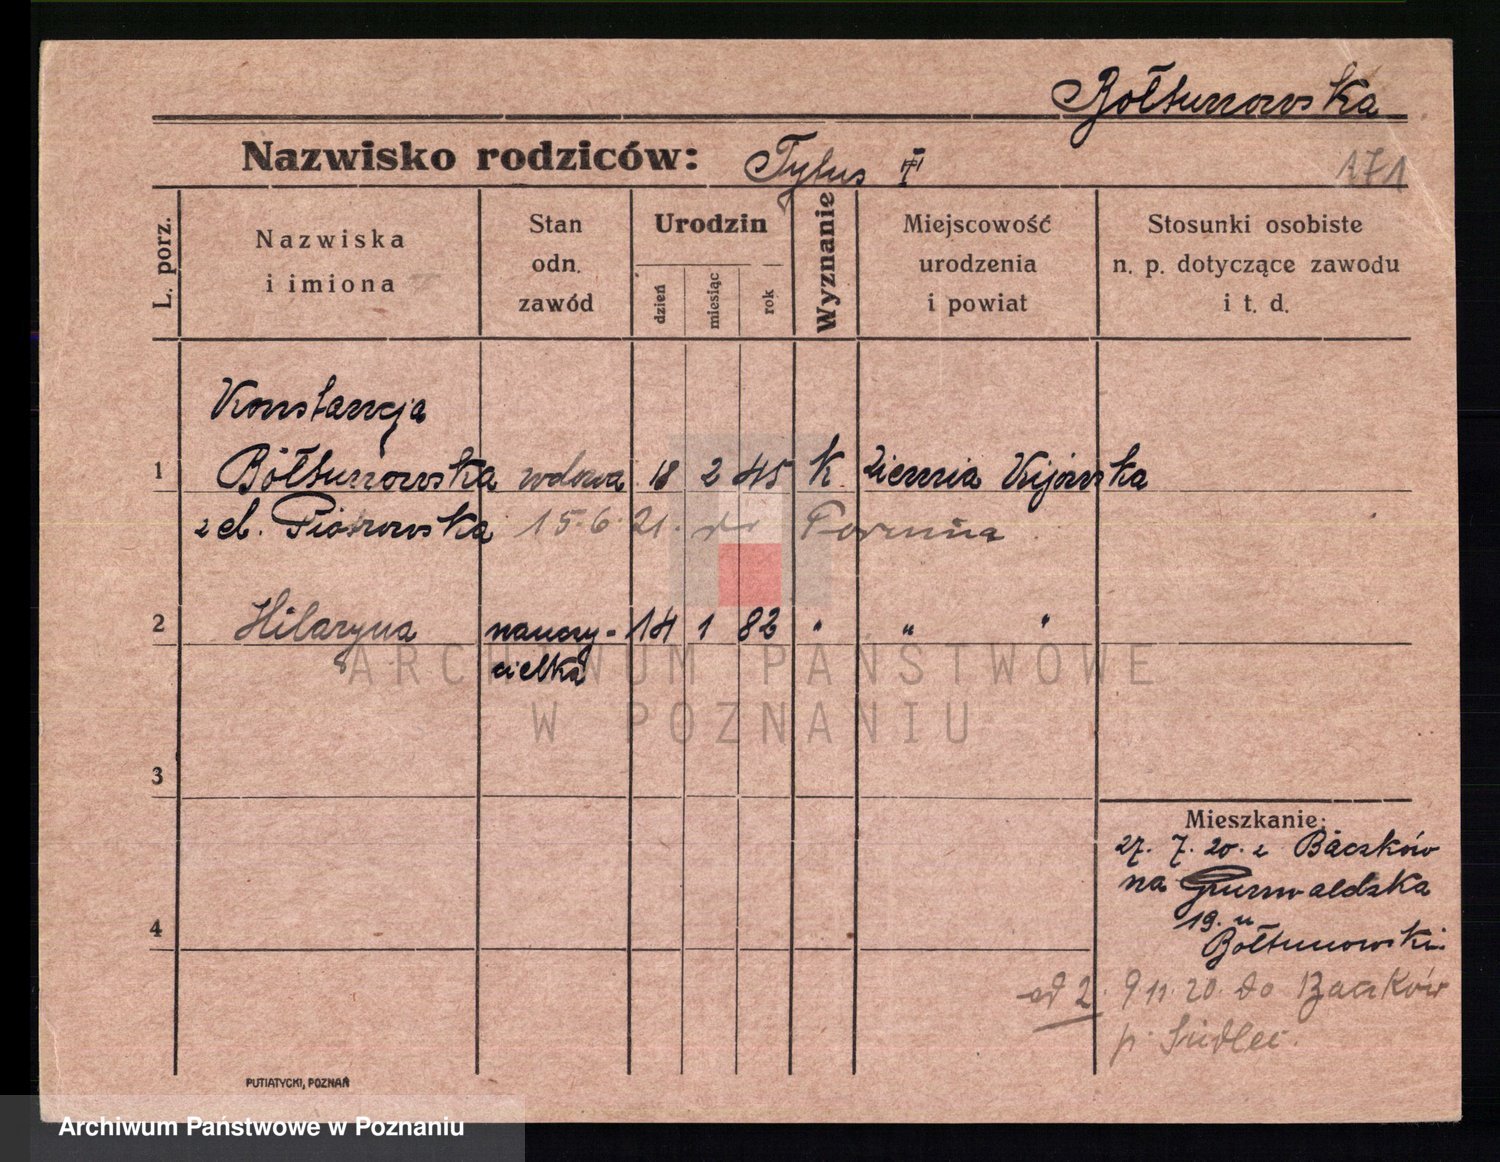 Bołtunowska
Nazwisko rodziców: Tytus
171
L. porz.
Nazwiska
i imiona
Stan
odn.
zawód
Urodzin
dzień
miesiąc
rok
Wyznanie
Miejscowość
urodzenia
i powiat
Stosunki osobiste
n. p. dotyczące zawodu
i t. d.
Konstancja
1 Bołtunowska wdowa 18 2 45 k. Ziemia Kijowska
z d. Piotrowska 15.6.21. do Torunia
2 Hilaryna nauczy- 14 1 82 " " "
cielka
ARCHIWUM PAŃSTWOWE
W POZNANIU
3
4
Mieszkanie:
27. 7. 20. z Baczków
na Grunwaldzka
19. u
Bołtunowski.
ad 2. 9.11.20. do Baczków
p.
PUTIATYCKI, POZNAŃ
Archiwum Państwowe w Poznaniu